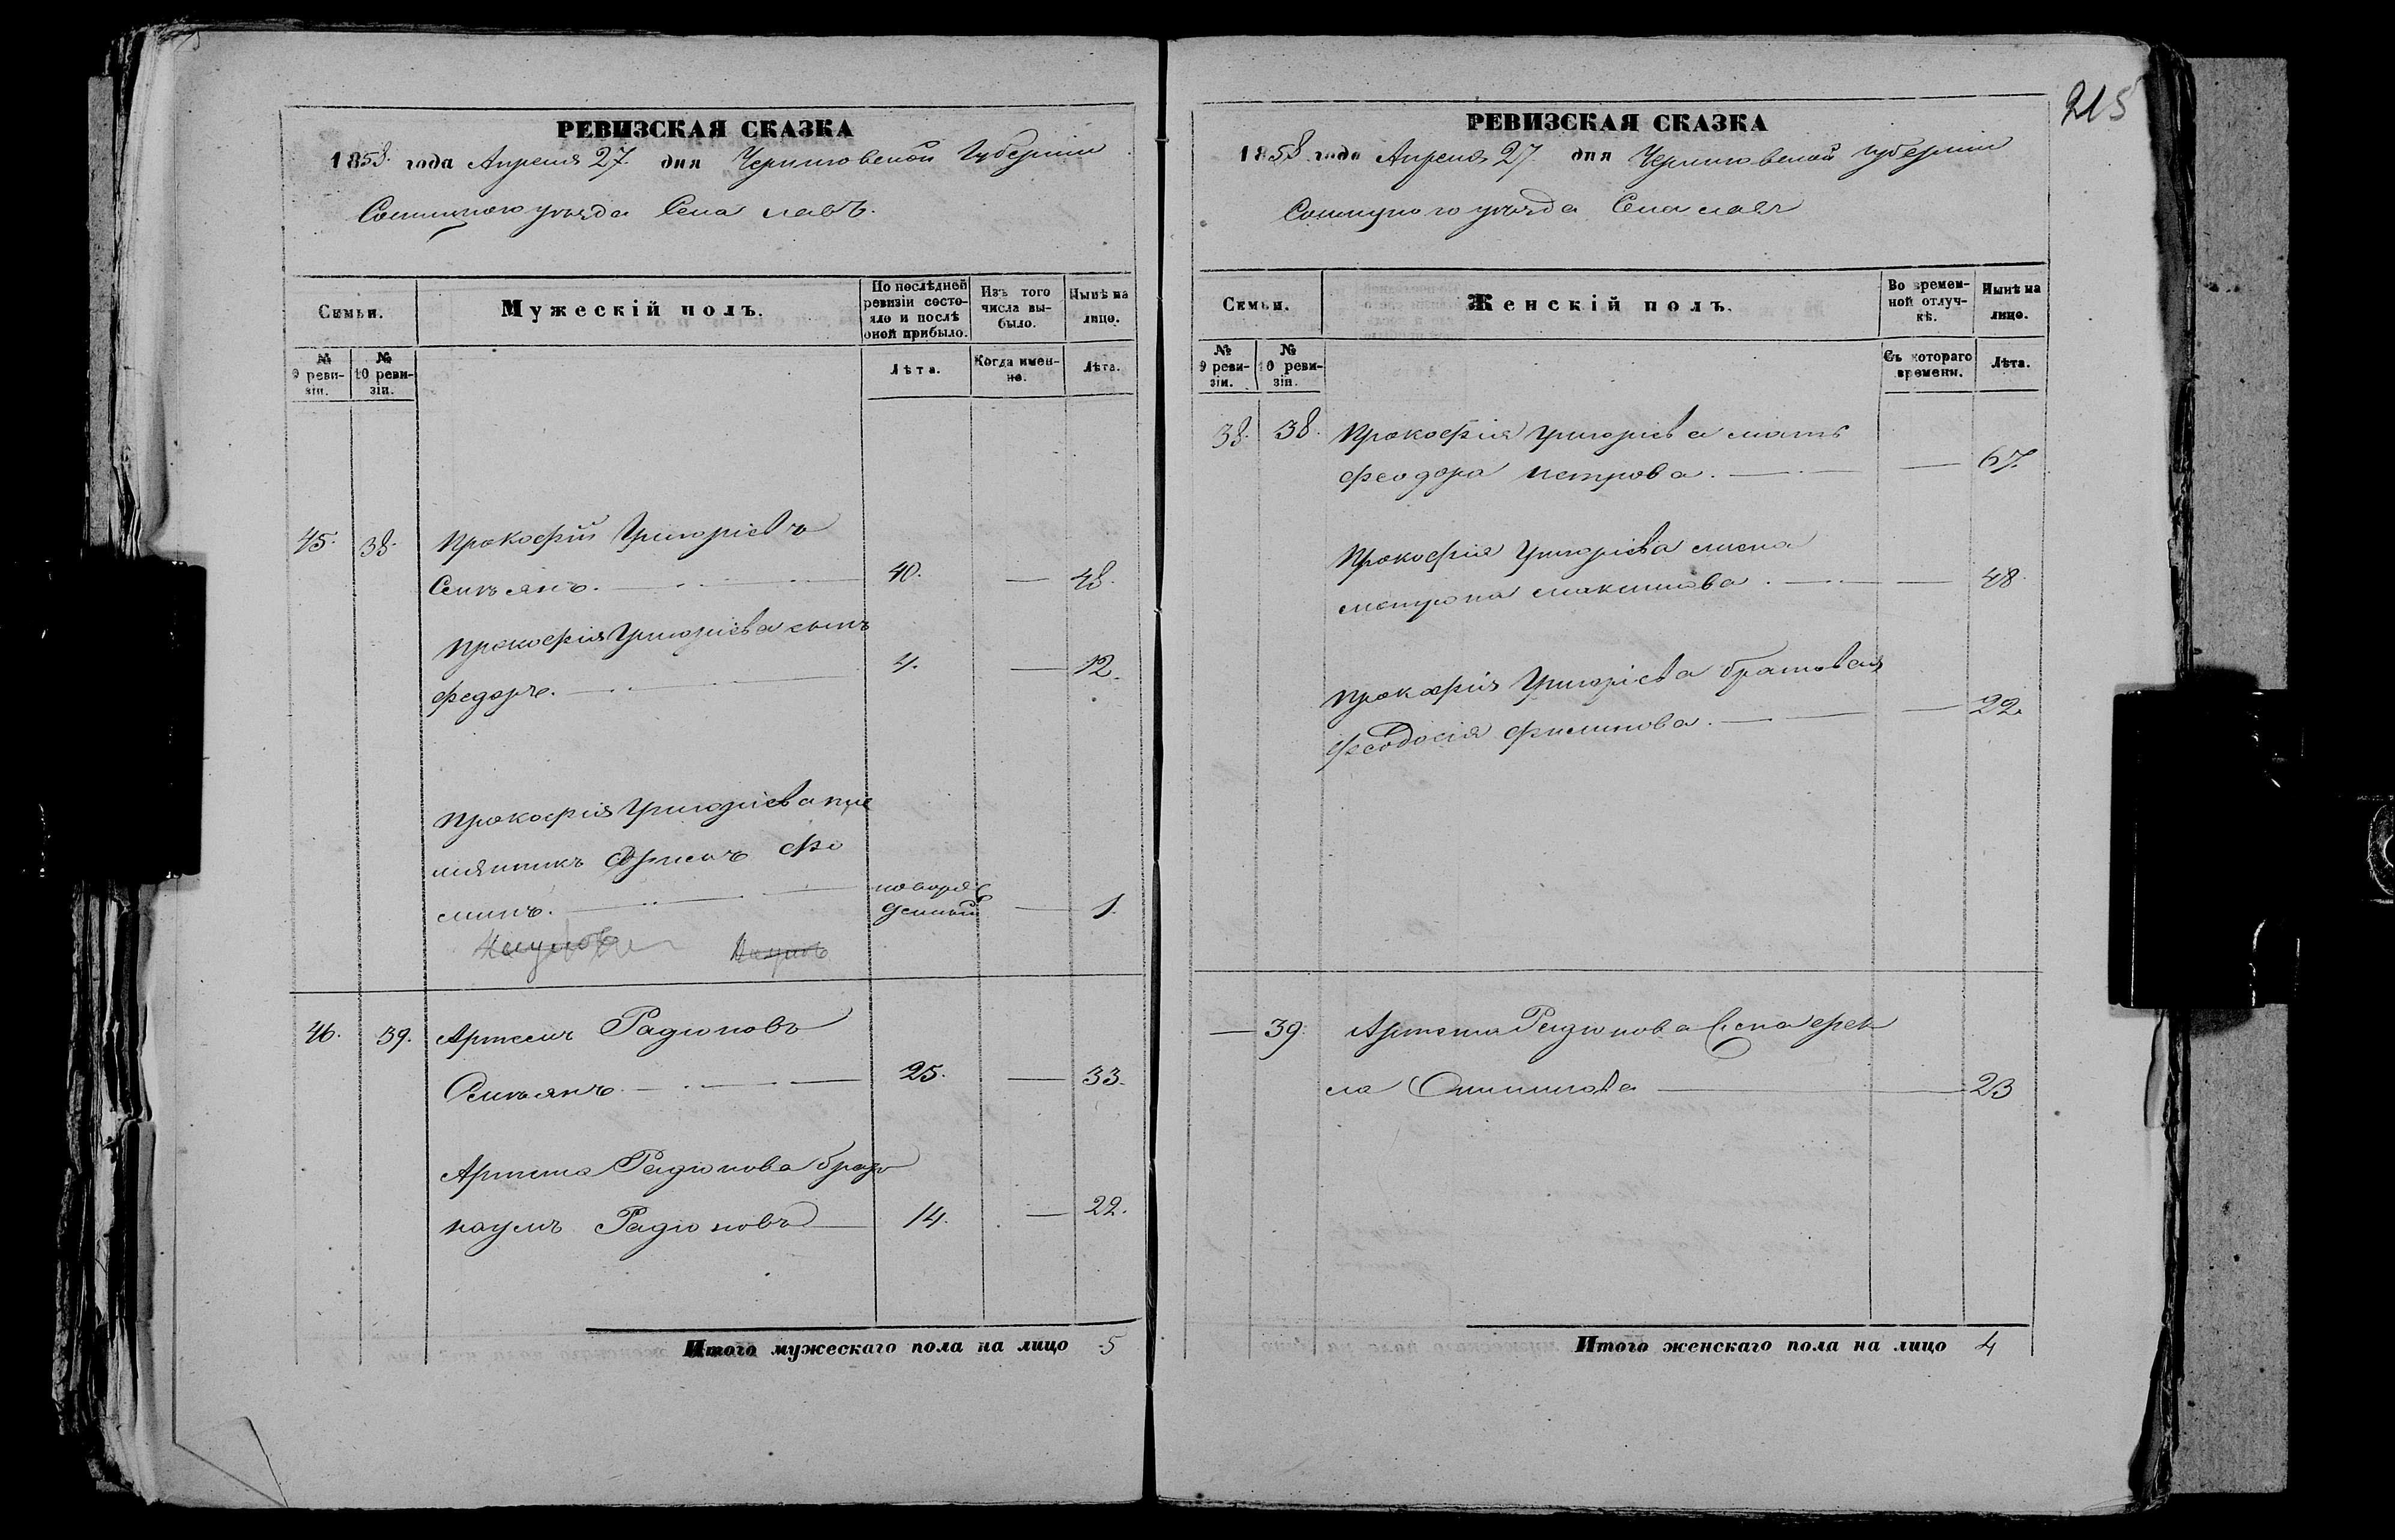 215
РЕВИЗСКАЯ СКАЗКА
1858 года Апреля 27 дня Черниговской Губернии
уезда Села Лавъ.
Семьи.
Мужескій полъ.
По послѣдней ревизіи состояло и послѣ оной прибыло.
Изъ того числа выбыло.
Нынѣ на лицо.
№ 9 ревизіи.
№ 10 ревизіи.
Лѣта.
Когда именно.
Лѣта.
45. 38. Прокофій Григоріевъ
40. — 48.
Прокофія Григоріева сынъ
Федоръ. 4. — 12.
Прокофія Григоріева пле
мянникъ Фо
минъ. новорож
денный — 1.
46. 39. Артемъ Радионовъ
25. — 33.
Артема Радионова братъ
Наумъ Радионовъ 14. — 22.
Итого мужескаго пола на лицо 5
РЕВИЗСКАЯ СКАЗКА
1858 года Апреля 27 дня Черниговской Губернии
уезда Села Лавъ
Семьи.
Женскій полъ.
Во временной отлучкѣ.
Нынѣ на лицо.
№ 9 ревизіи.
№ 10 ревизіи.
Съ котораго времени.
Лѣта.
38. 38. Прокофія Григоріева мать
Феодора Петрова. — 67.
Прокофія Григоріева жена
Матрона Максимова. — 48.
Прокофія Григоріева братовая
Феодосія Филипова. — 22.
— 39. Артема Радионова жена
— 23
Итого женскаго пола на лицо 4